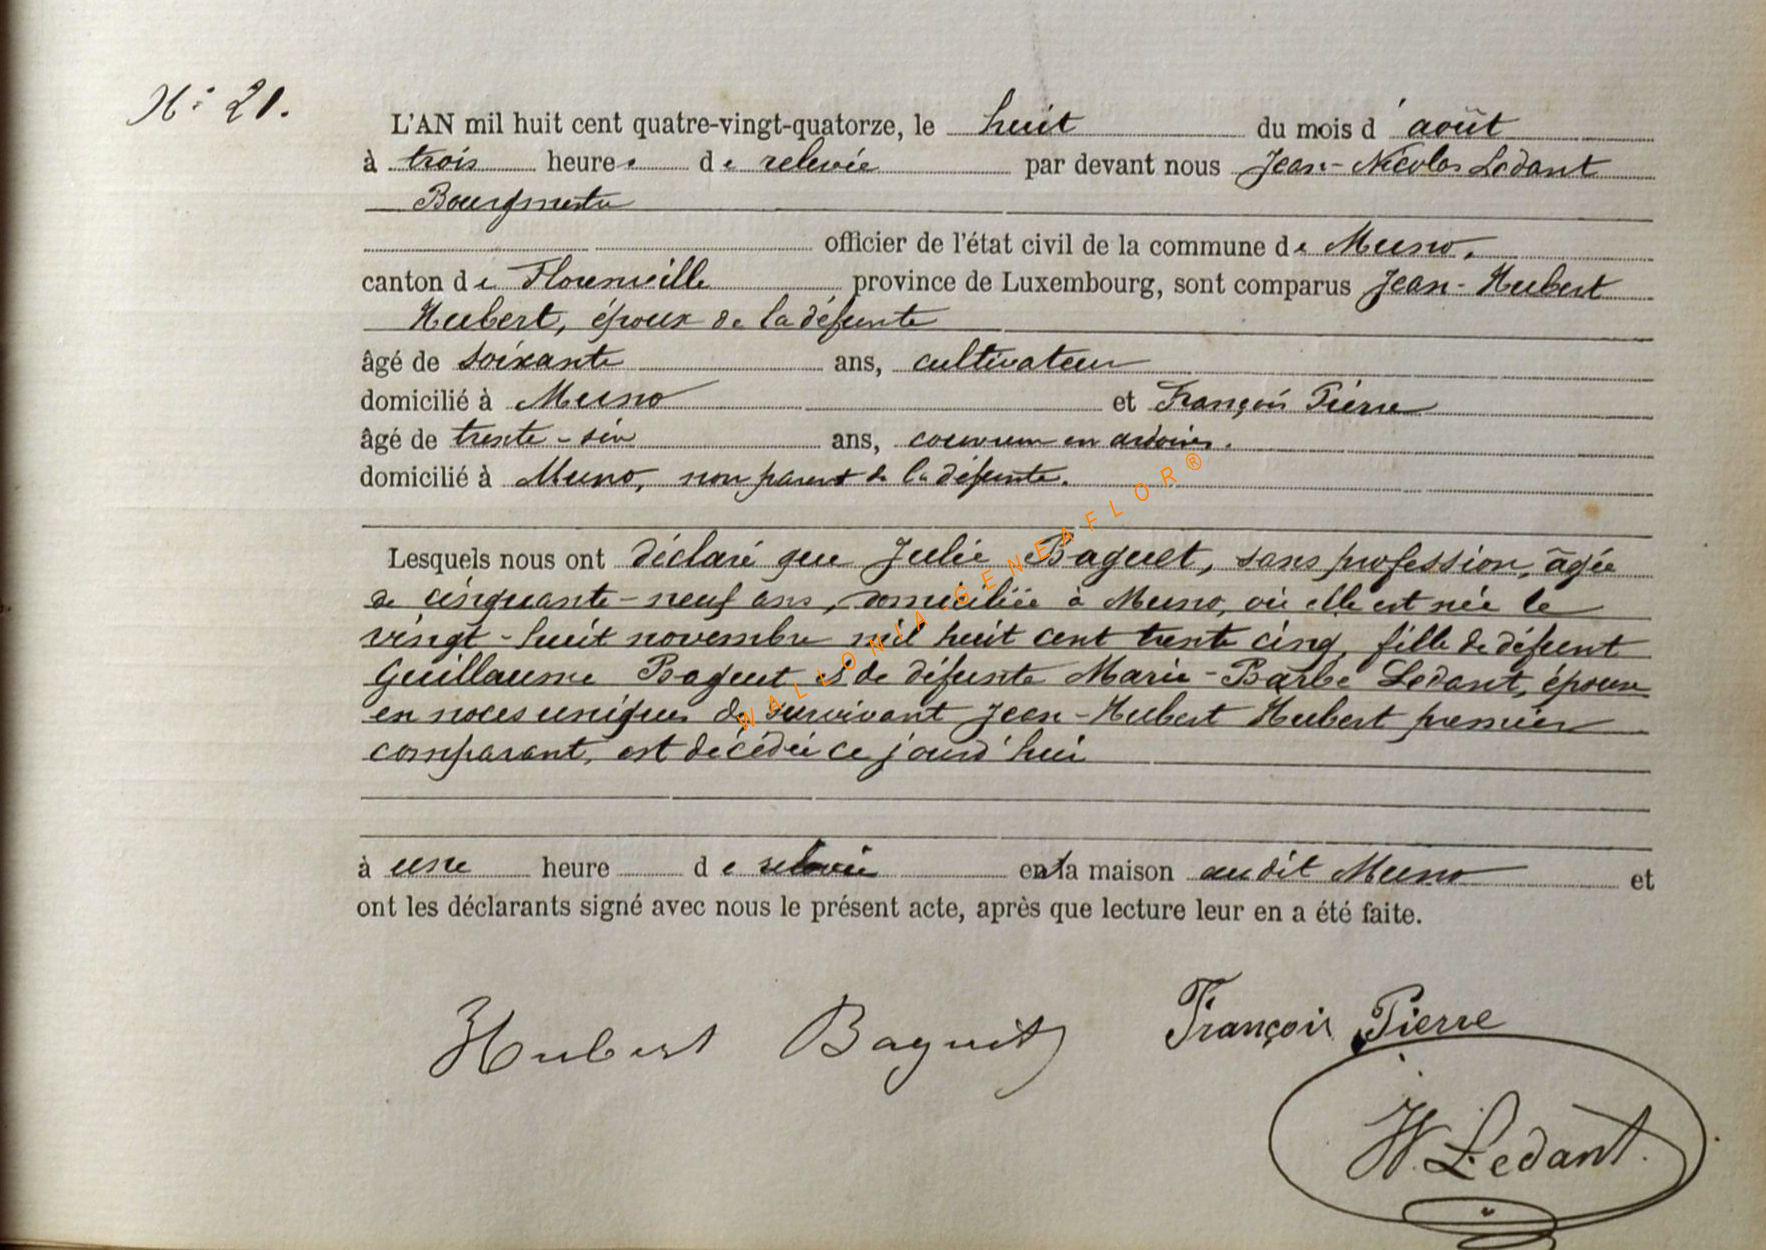 N° 21.
L'AN mil huit cent quatre-vingt-quatorze, le huit du mois d'août
à trois heures de relevée par devant nous Jean-Nicolas Ledant
Bourgmestre
officier de l'état civil de la commune de Muno,
canton de Florenville province de Luxembourg, sont comparus Jean-Hubert
Hubert, époux de la défunte
âgé de soixante ans, cultivateur
domicilié à Muno et François Pierre
âgé de trente-six ans, couvreur en ardoises.
domicilié à Muno, non parent de la défunte.
Lesquels nous ont déclaré que Julie Baguet, sans profession, âgée
de cinquante-neuf ans, domiciliée à Muno, où elle est née le
vingt-huit novembre mil huit cent trente cinq, fille de défunt
Guillaume Baguet & de défunte Marie-Barbe Ledant, épouse
en noces uniques du survivant Jean-Hubert Hubert premier
comparant, est décédée ce jourd'hui
à une heure de relevée en la maison audit Muno et
ont les déclarants signé avec nous le présent acte, après que lecture leur en a été faite.
Hubert Baguet François Pierre
N. Ledant.
WALLONIA GENEAFLOR®